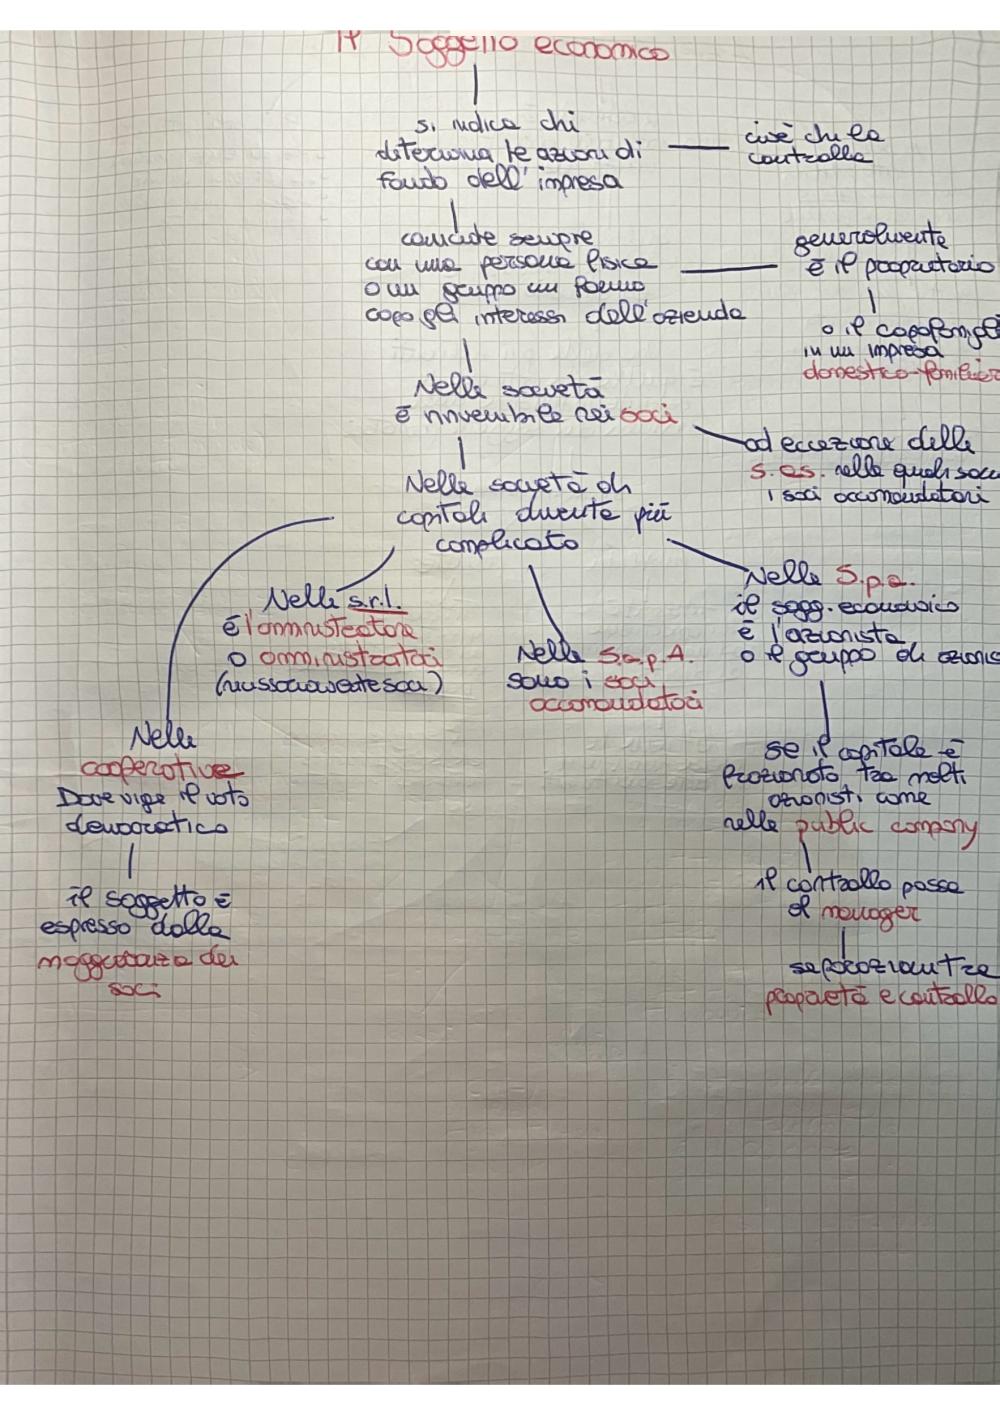 Il Soggetto economico
si indica chi
determina le azioni di
fondo dell'impresa
cioè chi la
controlla
coincide sempre
con una persona fisica
o un gruppo un fanno
capo gli interessi dell'azienda
generalmente
è il proprietario
o il capofamigl
in un impresa
domestico-familiar
Nelle società
è rinvenibile nei soci
ad eccezione delle
s.as. nelle quali sono
i soci accomandatari
Nelle società di
capitali diventa più
complicato
Nelle s.r.l.
è l'amministratore
o amministratori
(necessariamente soci)
Nelle S.a.p.A.
sono i soci
accomandatari
Nelle S.p.a.
il sogg. economico
è l'azionista
o il gruppo di azionis
se il capitale è
frazionato tra molti
azionisti come
nelle public company
il controllo passa
al manager
separazione tra
proprietà e controllo
Nelle
cooperative
Dove vige il voto
democratico
il soggetto è
espresso dalla
maggioranza dei
soci